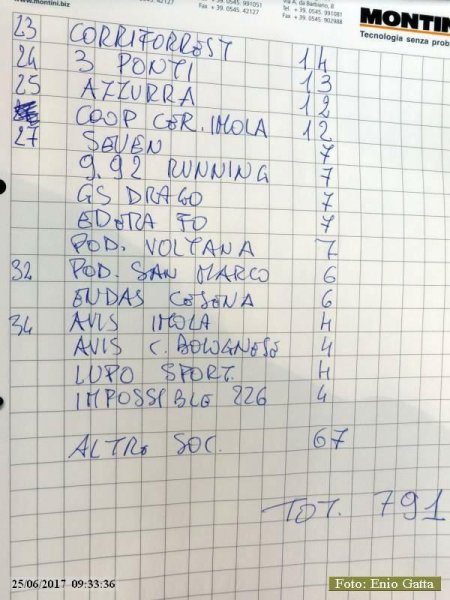 www.montini.biz
Fax + 39. 0545. 42127
+ 39. 0545. 991051
Fax + 39. 0545. 42127
Via A. da Barbiano, 8
Tel. + 39. 0545. 991081
Fax + 39. 0545. 902988
MONTINI
Tecnologia senza prob
23 CORRIFORREST 14
24 3 PONTI 13
25 AZZURRA 12
COOP CER. IMOLA 12
27 SEVEN 7
9.92 RUNNING 7
GS DRAGO 7
EDERA FO 7
POD. VOLTANA 7
32 POD. SAN MARCO 6
ENDAS CESENA 6
34 AVIS IMOLA 4
AVIS C. BOLOGNESE 4
LUPO SPORT. 4
IMPOSSIBLE 226 4
ALTRE SOC. 67
TOT. 791
25/06/2017 09:33:36
Foto: Enio Gatta